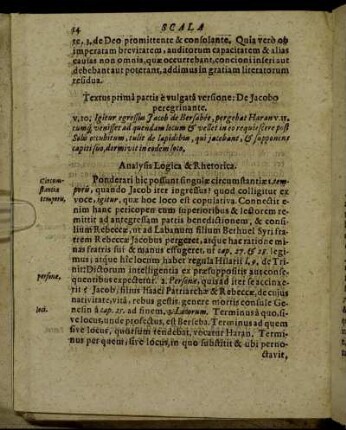 34 SCALA
de Deo promittente & consolante. Quia verò ob
imperatam brevitatem, auditorum capacitatem & alias
causas non omnia, quæ occurrebant, concioni inferi aut
debebant aut poterant, addimus in gratiam literatorum
residua.
Textus primæ partis è vulgatâ versione: De Jacobo
peregrinante.
v. 10. Igitur egressus Jacob de Bersabée, pergebat Haran v. 11.
cumq́ venisset ad quendam locum & vellet in eo requiescere post
Solis occubitum, tulit de lapidibus, qui jacebant, & supponens
capiti suo, dormivit in eodem loco.
Analysis Logica & Rhetorica.
Circum-
stantia
temporis,
Ponderari hîc possunt singulæ circumstantiæ 1. tem-
poris, quando Jacob iter ingressus? quod colligitur ex
voce, igitur, quæ hoc loco est copulativa. Connectit e-
nim hanc pericopen cum superioribus & lectorem re-
mittit ad antegressam patris benedictionem, & consi-
lium Rebeccæ, ut ad Labanum filium Bethuel Syri fra-
trem Rebeccæ Jacobus pergeret, atque hac ratione mi-
nas fratris sui & manus effugeret, uti cap. 27. & 28. legi-
mus; atque hîc locum habet regula Hilarii l. 9. de Tri-
nit: Dictorum intelligentia ex præsuppositis aut conse-
quentibus expectetur.
personæ,
2. Personæ, quis ad iter se accinxe-
rit? Jacob, filius Isaaci Patriarchæ & Rebeccæ, de cujus
nativitate, vitâ, rebus gestis, genere mortis consule Ge-
loci.
nesin à cap. 25. ad finem, Locorum. Terminus à quo, si-
ve locus, unde profectus, est Berseba. Terminus ad quem
sive locus, quorsum tendebat, vocatur Haran. Termi-
nus per quem, sive locus, in quo substitit & ubi perno-
ctavit,